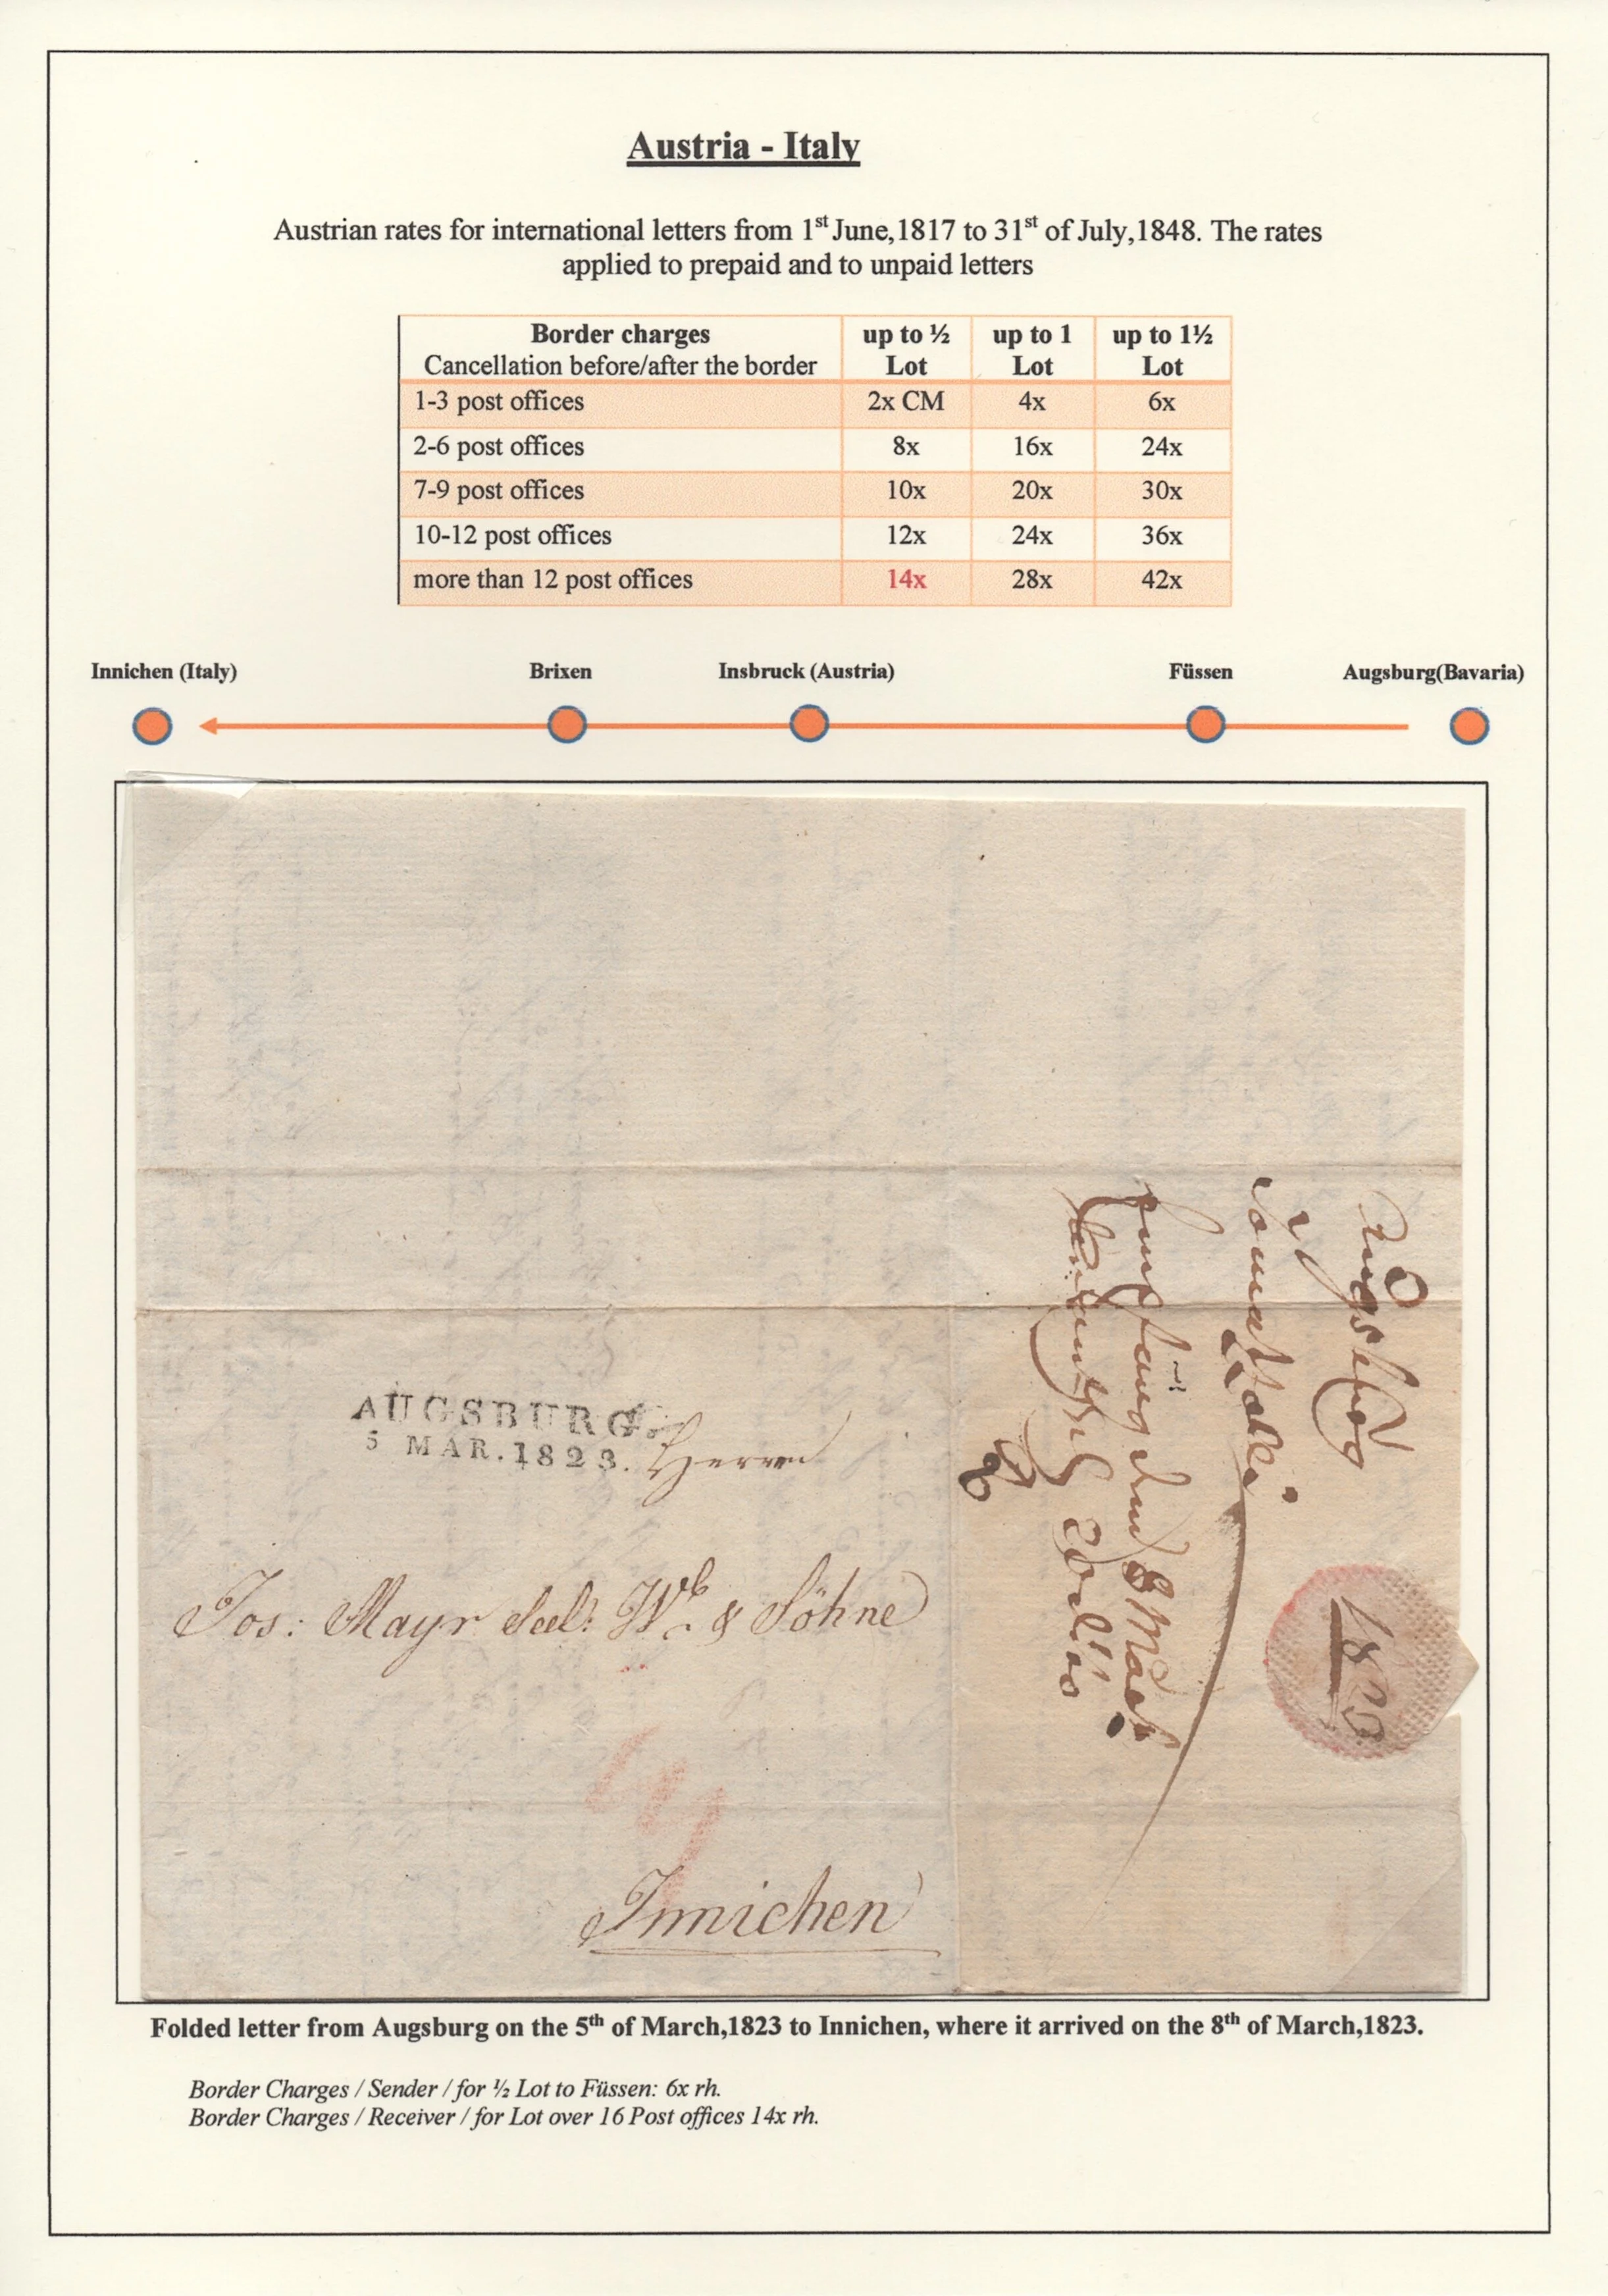 Austria - Italy
Austrian rates for international letters from 1st June,1817 to 31st of July,1848. The rates
applied to prepaid and to unpaid letters
Border charges
Cancellation before/after the border
up to ½ Lot
up to 1 Lot
up to 1½ Lot
1-3 post offices 2x CM 4x 6x
2-6 post offices 8x 16x 24x
7-9 post offices 10x 20x 30x
10-12 post offices 12x 24x 36x
more than 12 post offices 14x 28x 42x
Innichen (Italy) Brixen Insbruck (Austria) Füssen Augsburg(Bavaria)
AUGSBURG.
5 MAR.1823.
Herrn
Jos: Mayr Seel: Wb & Söhne
Innichen
Augsburg
8 März
1823
Folded letter from Augsburg on the 5th of March,1823 to Innichen, where it arrived on the 8th of March,1823.
Border Charges / Sender / for ½ Lot to Füssen: 6x rh.
Border Charges / Receiver / for Lot over 16 Post offices 14x rh.